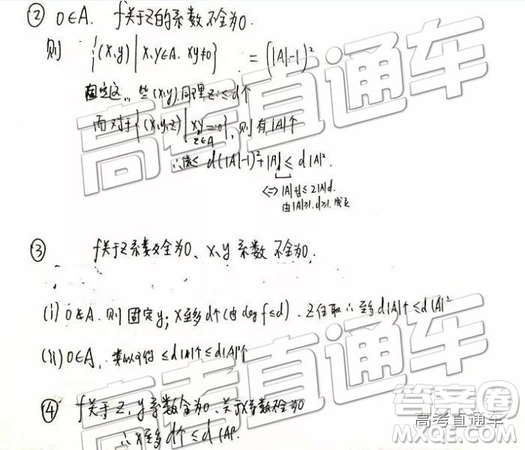 ② 0∈A. f关于z的系数不全为0.
则 {(x,y) | x,y∈A. xy≠0} = (|A|-1)²
固定这些(x,y) 同理z ≤ d个
而对于{(x,y,z) | xy=0, z∈A}, 则有|A|个
∴ d(|A|-1)²+|A| ≤ d|A|².
⇔ |A|+d ≤ 2|A|d.
由|A|≥1. d≥1. 成立
③ f关于z系数全为0、x、y 系数 不全为0.
(i) 0∉A. 则固定y; x至多d个(由deg f≤d). z任取 ∴ 至多d|A|个 ≤d|A|²
(ii) 0∈A, 类似可得 ≤d|A|个≤d|A|²个
④ f关于z、y系数全为0、关于x系数不全为0
∴ x至多 d个 ≤ d|A|².
高考直通车
高考直通车
高考直通车
答案圈
高考直通车
MXQE.COM